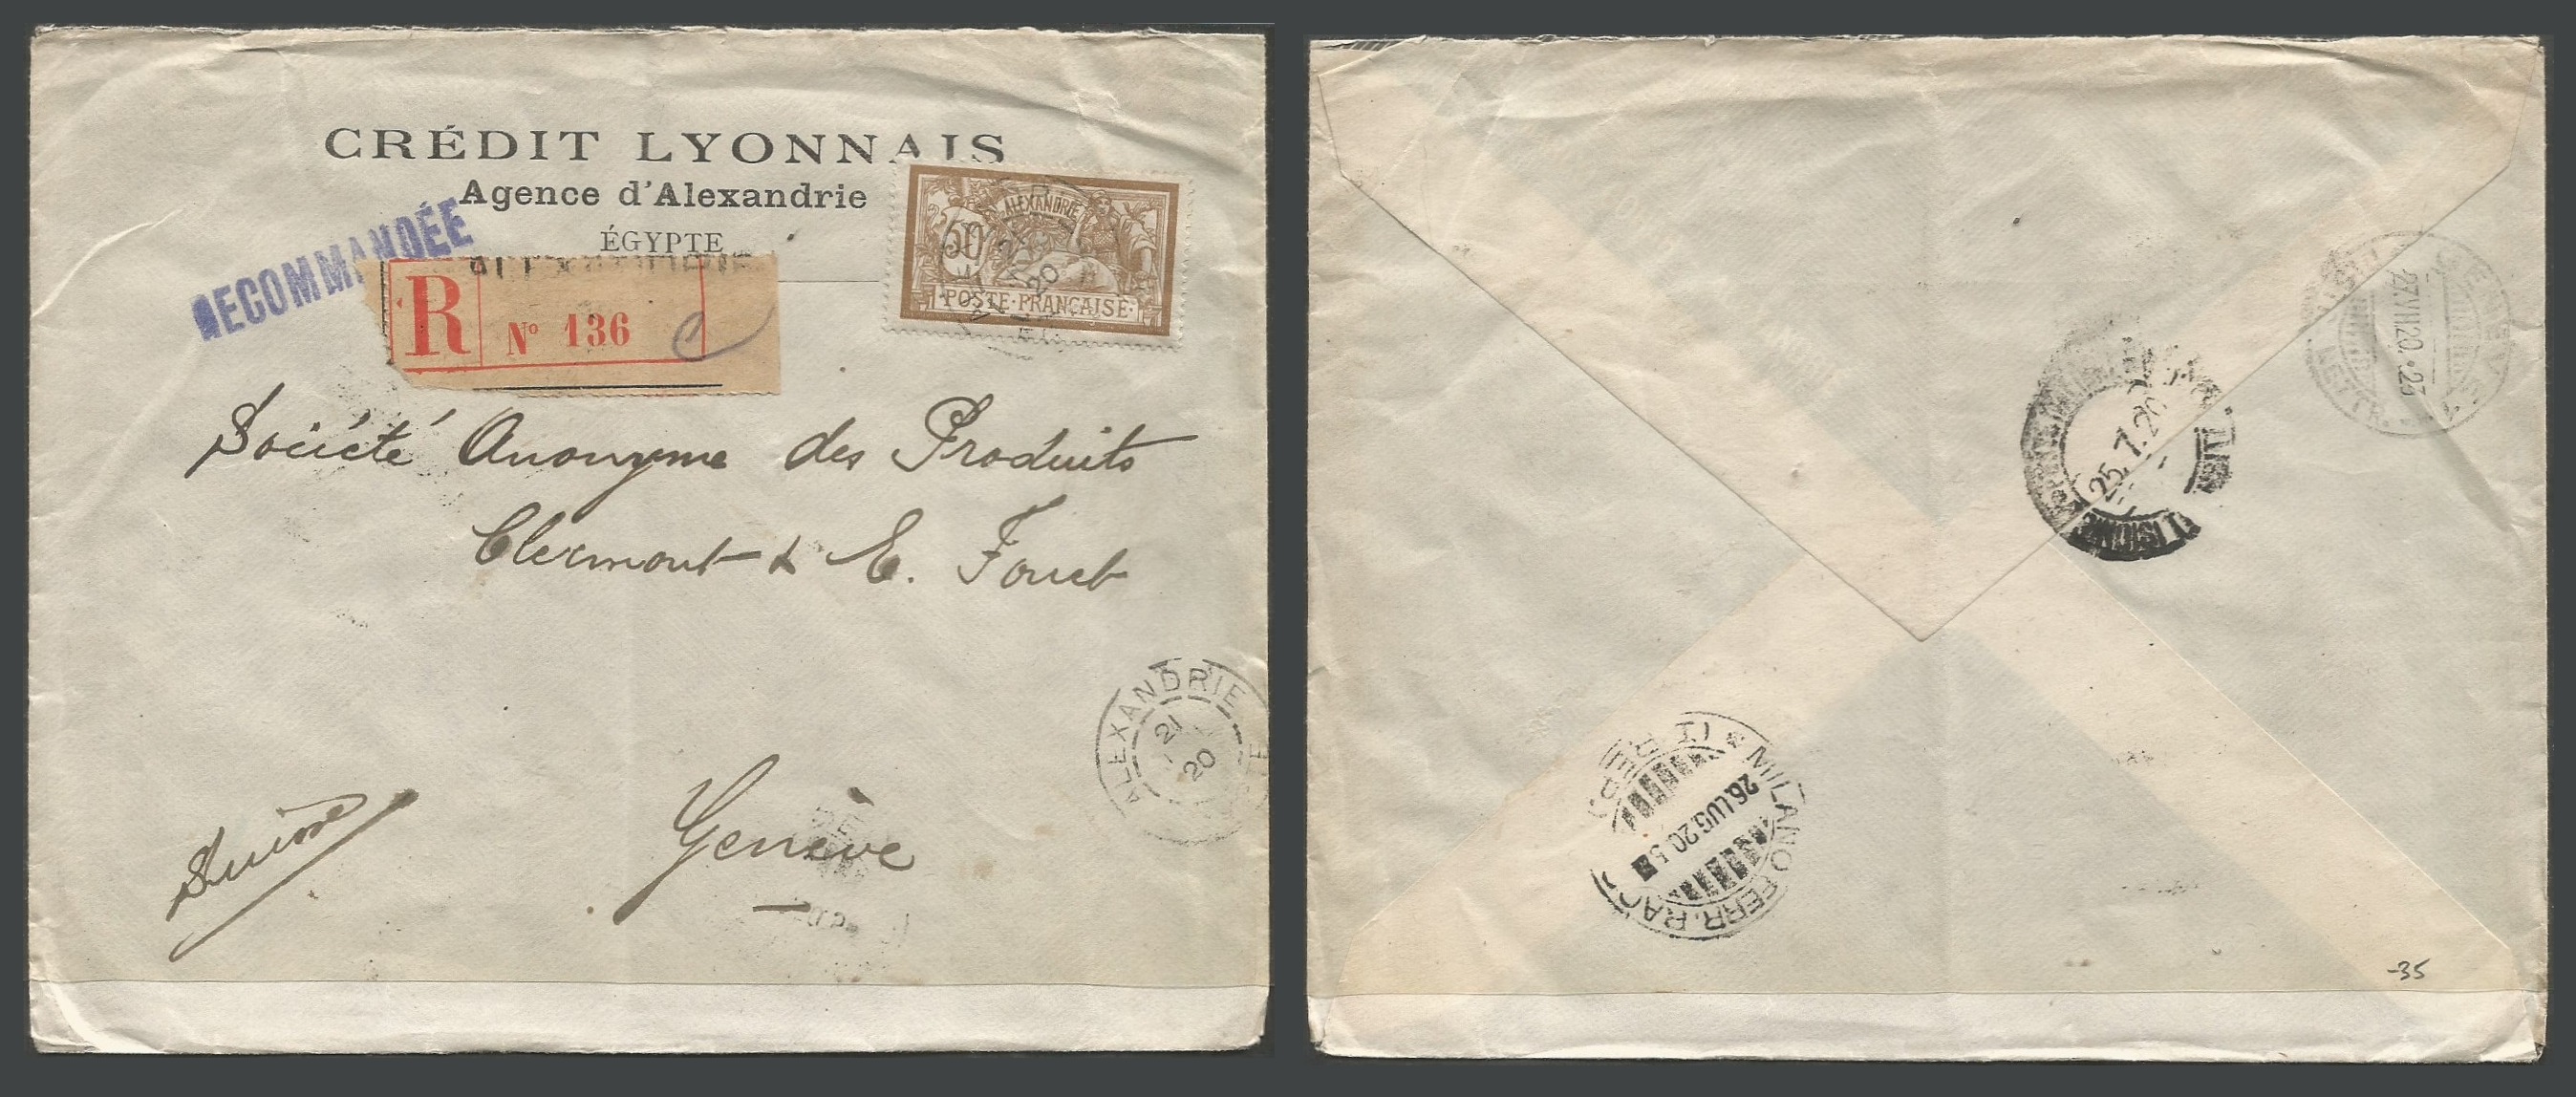 CRÉDIT LYONNAIS
Agence d'Alexandrie
ÉGYPTE
RECOMMANDÉE
R
Nº 136
ALEXANDRIE
50
20
POSTE FRANÇAISE
Société Anonyme des Produits
Clermont & E. Fouet
ALEXANDRIE
21
20
Genève
Suisse
27.VII.20.23
25.7.20
MILANO FERR. RACC
26.LUG.20.5
-35